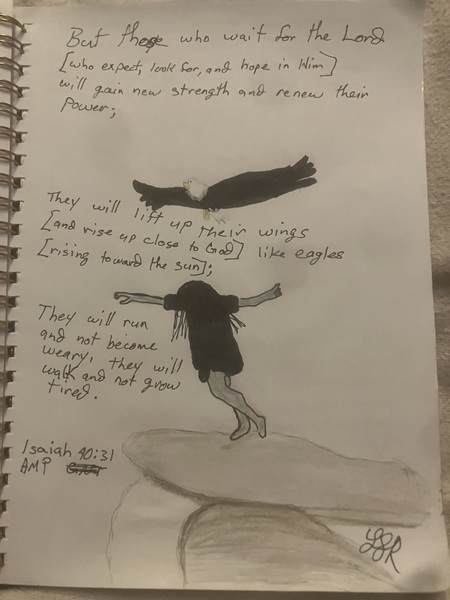 But those who wait for the Lord
[who expect, look for, and hope in Him]
will gain new strength and renew their
power;
They will lift up their wings
[and rise up close to God] like eagles
[rising toward the sun];
They will run
and not become
weary, they will
walk and not grow
tired.
Isaiah 40:31
AMP
LSR